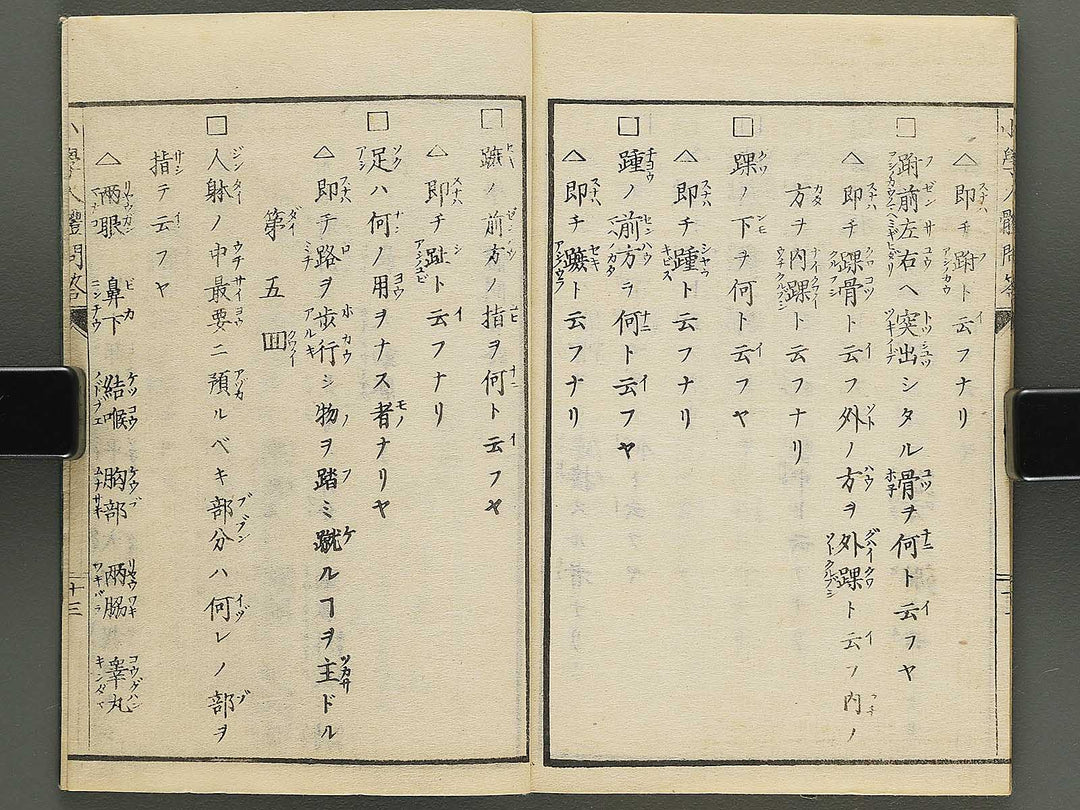 △即チ跗ト云フナリ
□跗前左右ヘ突出シタル骨ヲ何ト云フヤ
△即チ踝骨ト云フ外ノ方ヲ外踝ト云フ内ノ
方ヲ内踝ト云フナリ
□踝ノ下ヲ何ト云フヤ
△即チ踵ト云フナリ
□踵ノ前方ヲ何ト云フヤ
△即チ蹠ト云フナリ
□蹠ノ前方ノ指ヲ何ト云フヤ
△即チ趾ト云フナリ
□足ハ何ノ用ヲナス者ナリヤ
△即チ路ヲ歩行シ物ヲ踏ミ蹴ルヿヲ主ドル
第五囬
□人躰ノ中最要ニ預ルベキ部分ハ何レノ部ヲ
指テ云フヤ
△兩眼 鼻下 結喉 胸部 兩脇 睾丸
小學人體問答
十三